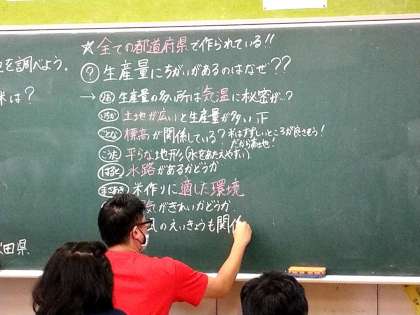 ☆全ての都道府県で作られている!!
を調べよう。
⑨生産量にちがいがあるのはなぜ??
米は?
→生産量の多い所は気温に秘密が…?
土地が広いと生産量が多い 正
標高が関係している?
米はすずしいところが良さそう!
だから高い地!
こうた 平らな地形(水をあたえやすい)
はると 水路があるかどうか
まさあき 米作りに適した環境
気がきれいかどうか
のえいきょうも関係
田県